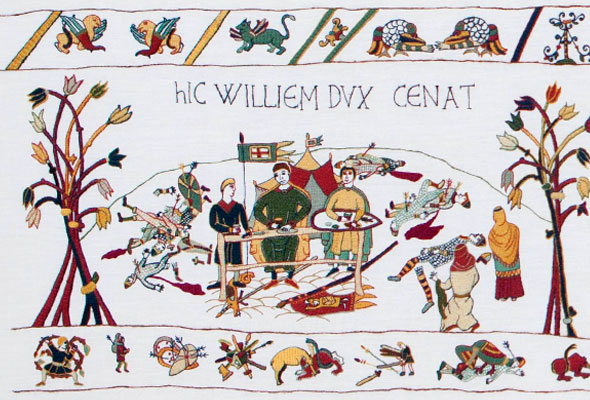 hIC WILLIEM DVX CENAT